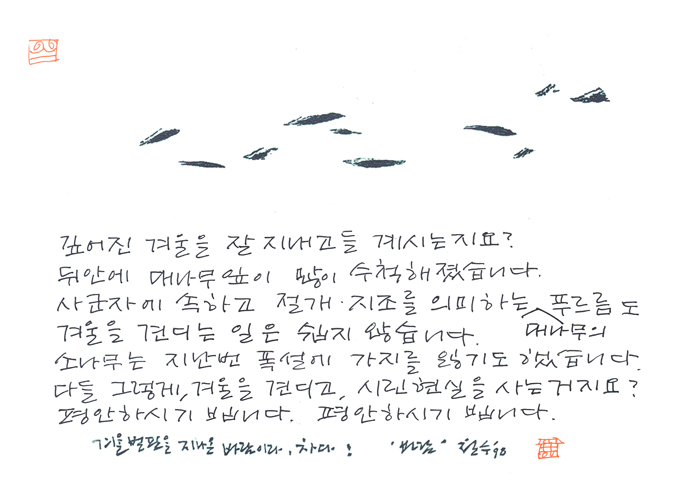 깊어진 겨울을 잘 지내고들 계시는지요?
뒤안에 대나무잎이 많이 수척해졌습니다.
사군자에 속하고 절개·지조를 의미하는 푸르름도
겨울을 견디는 일은 쉽지 않습니다. 대나무의
소나무는 지난번 폭설에 가지를 잃기도 했습니다.
다들 그렇게, 겨울을 견디고, 시린현실을 사는거지요?
평안하시기 빕니다. 평안하시기 빕니다.
겨울벌판을 지나온 바람이라, 차다! "바람" 철수98